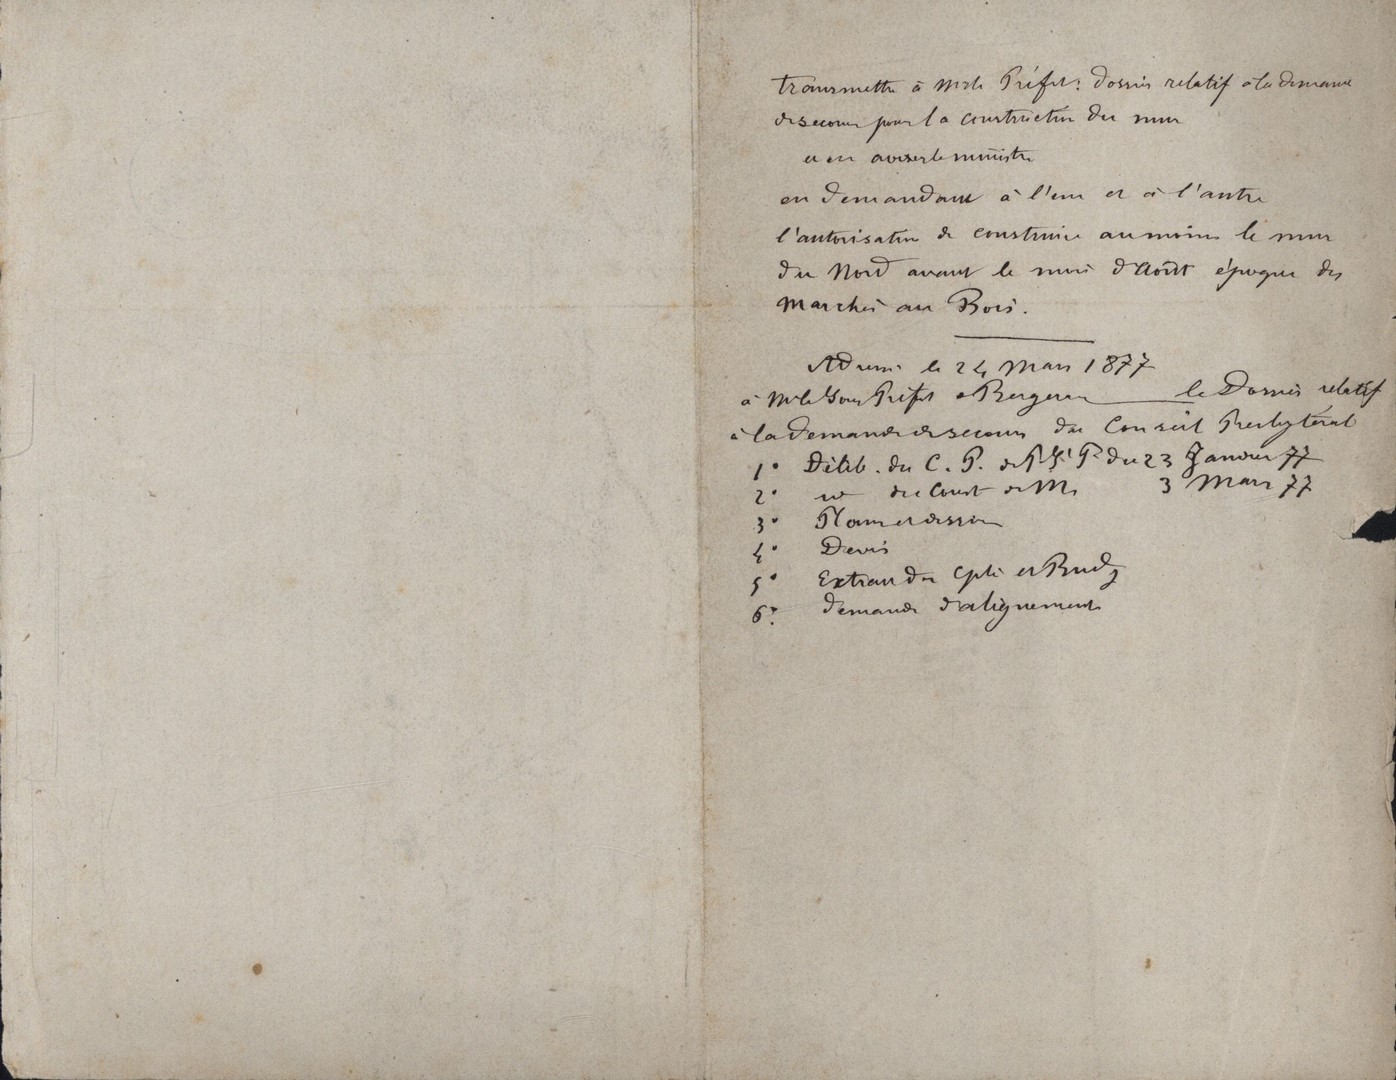 transmettre à Mr le Préfet : Dossier relatif à la demande
de secours pour la construction du mur
et en aviser le ministre
en demandant à l'un et à l'autre
l'autorisation de construire au moins le mur
du Nord avant le mois d'Août époque des
Marchés au Bois.
Adressé le 24 Mars 1877
à Mr le Sous Préfet à Bergerac le Dossier relatif
à la demande de secours du Conseil Presbytéral
1° Délib. du C. P. de du 23 Janvier 77
2° id du Consist de M. 3 Mars 77
3° Plans et dessin
4° Devis
5° Extrait du Cpte et Budg
6° demande d'alignement